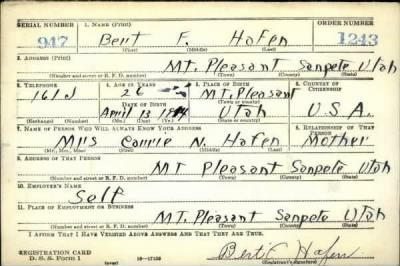 SERIAL NUMBER 1. NAME (Print) ORDER NUMBER
947 Bert F. Hafen 1243
(First) (Middle) (Last)
2. ADDRESS (Print)
Mt. Pleasant Sanpete Utah
(Number and street or R. F. D. number) (Town) (County) (State)
3. TELEPHONE 4. AGE IN YEARS 5. PLACE OF BIRTH 6. COUNTRY OF CITIZENSHIP
161J 26 Mt. Pleasant
DATE OF BIRTH (Town or county)
April 13 1914 Utah U.S.A.
(Exchange) (Number) (Mo.) (Day) (Yr.) (State or country)
7. NAME OF PERSON WHO WILL ALWAYS KNOW YOUR ADDRESS 8. RELATIONSHIP OF THAT PERSON
Mrs Carrie N. Hafen Mother
(Mr., Mrs., Miss) (First) (Middle) (Last)
9. ADDRESS OF THAT PERSON
Mt Pleasant Sanpete Utah
(Number and street or R. F. D. number) (Town) (County) (State)
10. EMPLOYER'S NAME
Self
11. PLACE OF EMPLOYMENT OR BUSINESS
Mt. Pleasant Sanpete Utah
(Number and street or R. F. D. number) (Town) (County) (State)
I AFFIRM THAT I HAVE VERIFIED ABOVE ANSWERS AND THAT THEY ARE TRUE.
REGISTRATION CARD
D. S. S. Form 1 16—17105 Bert F Hafen
(Registrant's signature)